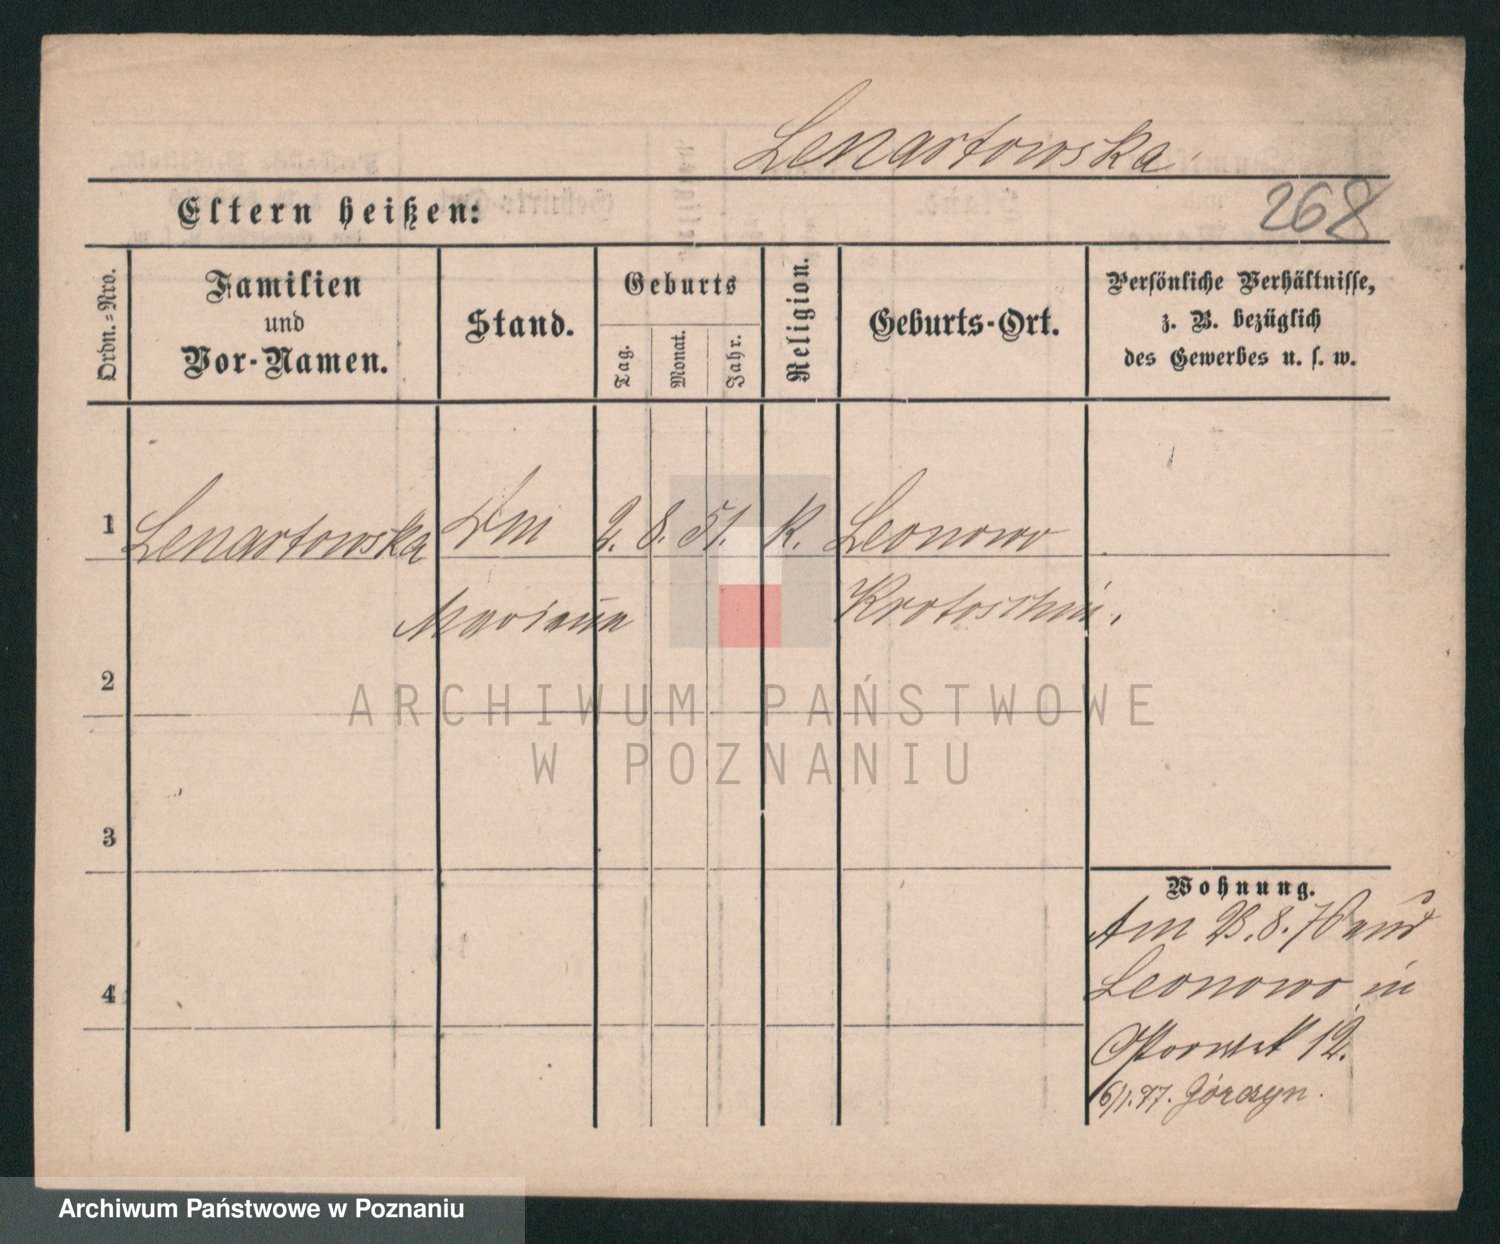 Lenartowska
Eltern heißen:
268
Ordn.-Nro.
Familien
und
Vor-Namen.
Stand.
Geburts
Tag.
Monat.
Jahr.
Religion.
Geburts-Ort.
Persönliche Verhältnisse,
z. B. bezüglich
des Gewerbes u. s. w.
1
Lenartowska
2. 8. 51. K. Leonowo
Marianna
Krotoschin.
2
3
4
Wohnung.
Am 23. 8. 76 aus
Leonowo in
12.
6/1. 97. Górczyn.
ARCHIWUM PAŃSTWOWE
W POZNANIU
Archiwum Państwowe w Poznaniu